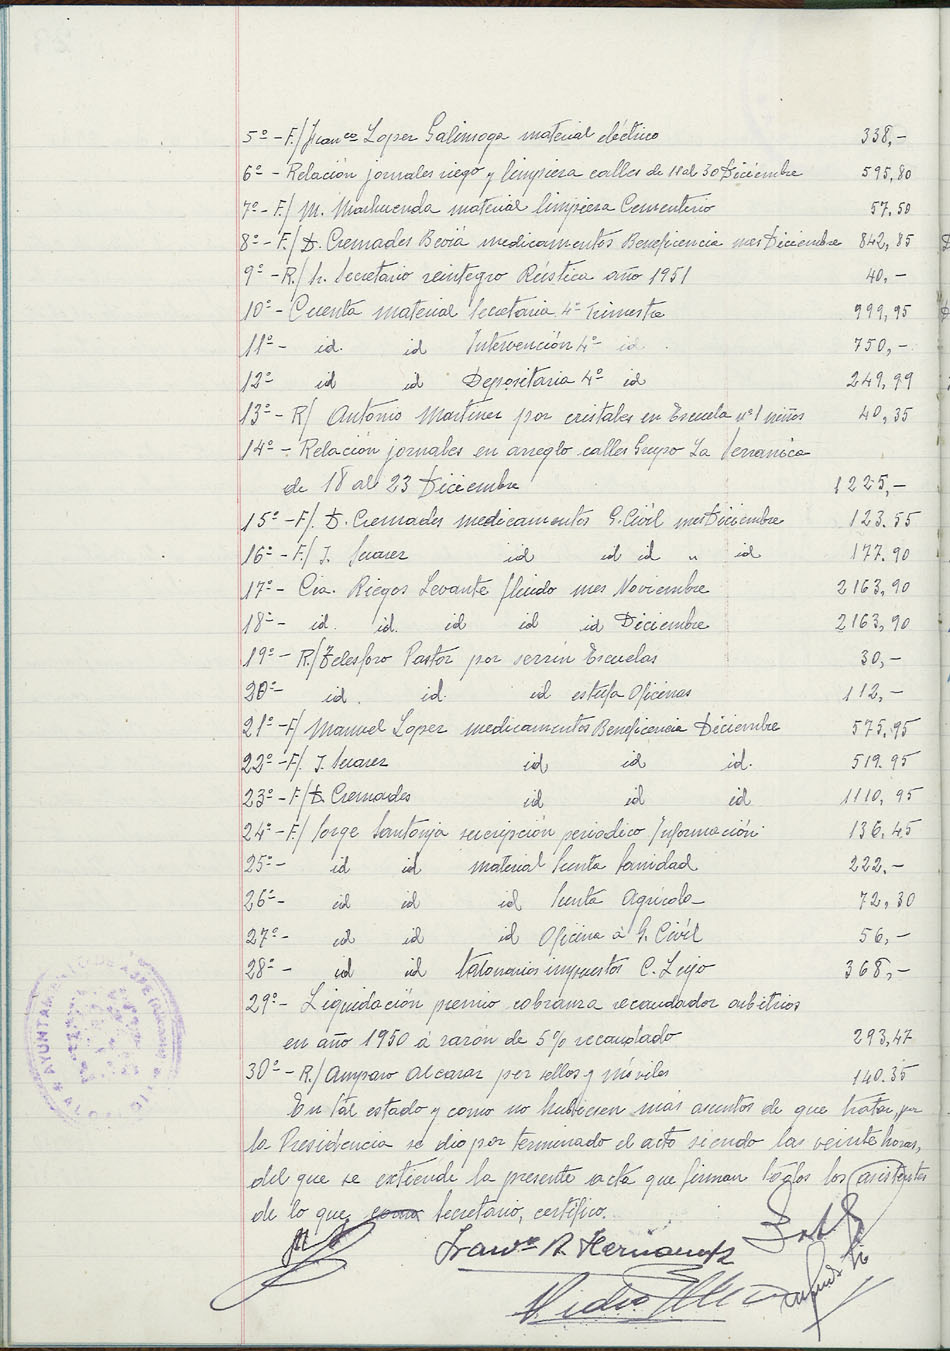 5º - F/ Franco Lopez Galinsoga material eléctrico 338,-
6º - Relación jornales riego y limpieza calles de 11 al 30 Diciembre 595,80
7º - F/ M. Marhuenda material limpieza Cementerio 57.50
8º - F./ D. Cremades Beviá medicamentos Beneficencia mes Diciembre 842,85
9º - R./ Sr. Secretario reintegro Rústica año 1951 40,-
10º - Cuenta material Secretaria 4º Trimestre 999,95
11º - id. id Intervención 4º id. 750,-
12º id id Depositaria 4º id 249,99
13º - R/ Antonio Martinez por cristales en Escuela nº 1 niños 40,35
14º - Relación jornales en arreglo calles Grupo La Serranica
de 18 al 23 Diciembre 1225,-
15º - F/. D. Cremades medicamentos G. Civil mes Diciembre 123.55
16º - F./ J. Suarez id id id " id 177.90
17º - Cia. Riegos Levante fluido mes Noviembre 2163,90
18º - id. id. id id id Diciembre 2163,90
19º - R./ Telesforo Pastor por serrin Escuelas 30,-
20º - id. id. id estufa Oficinas 112,-
21º - F/ Manuel Lopez medicamentos Beneficencia Diciembre 575.95
22º - F/. J. Suarez id id id. 519.95
23º - F/ D. Cremades id id id 1110,95
24º - F/ Jorge Santonja suscripción periodico Información 136.45
25º - id id material Junta Sanidad 222.-
26º - id id id Junta Agrícola 72,30
27º - id id id Oficina á G. Civil 56,-
28º - id id talonarios impuestos C. Lujo 368,-
29º - Liquidación premio cobranza recaudador arbitrios
en año 1950 á razón de 5% recaudado 293,47
30º - R./ Amparo Alcaraz por sellos y móviles 140.35
En tal estado y como no hubiesen mas asuntos de que tratar, por
la Presidencia se dio por terminado el acto siendo las veinte horas,
del que se extiende la presente acta que firman todos los asistentes
de lo que, como Secretario, certifico.
Franco A. Hernandez
AYUNTAMIENTO DE ASPE (Alicante)